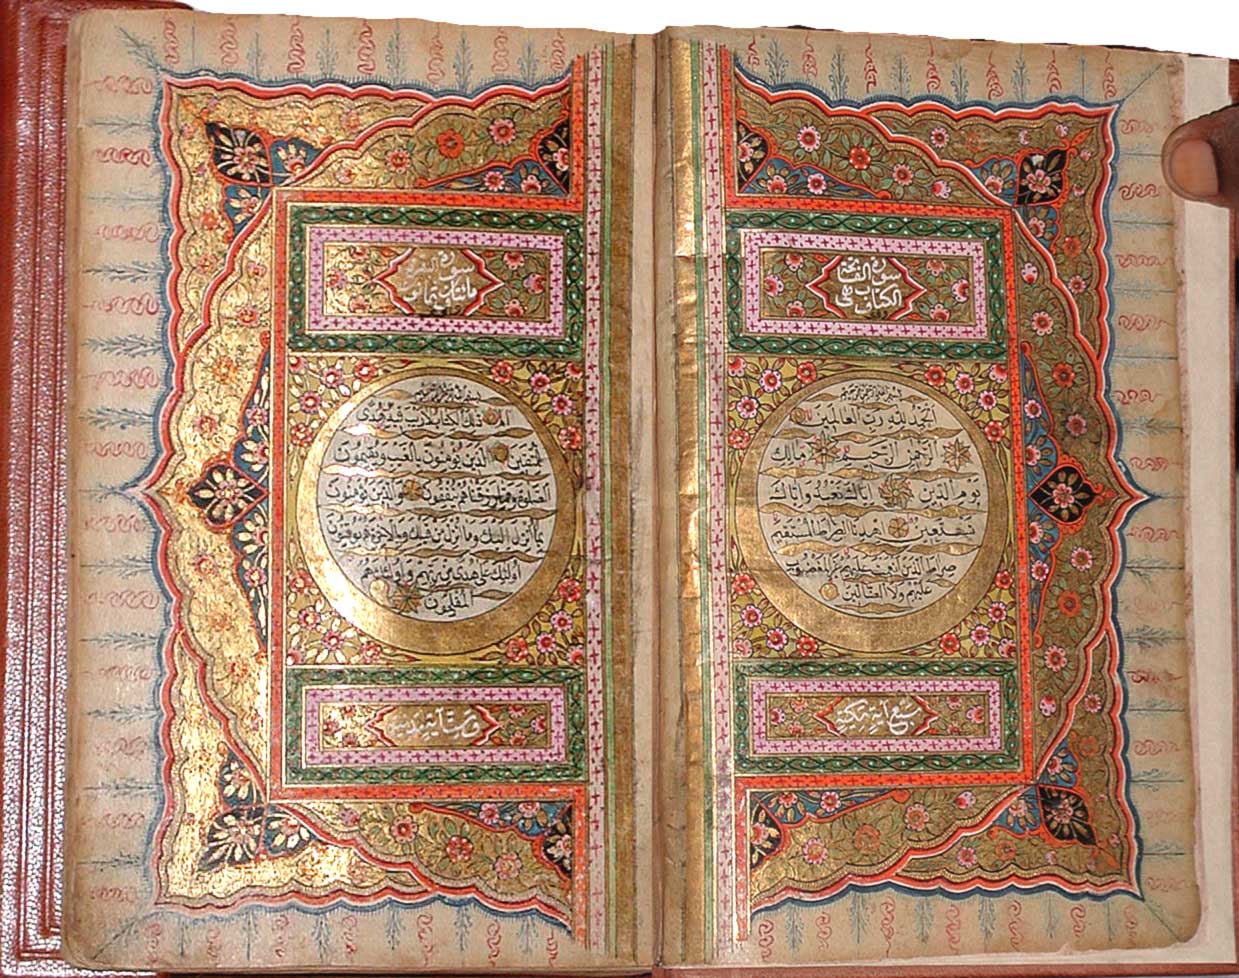 سورة الفاتحة
الكتاب
بسم الله الرحمن الرحيم
الحمد لله رب العالمين
الرحمن الرحيم مالك
يوم الدين اياك نعبد واياك
نستعين اهدنا الصراط المستقيم
صراط الذين انعمت عليهم غير المغضوب
عليهم ولا الضالين
سبع آية مكية
سورة البقرة
مائتان ثمانون
بسم الله الرحمن الرحيم
الم ذلك الكتاب لا ريب فيه هدى
للمتقين الذين يؤمنون بالغيب ويقيمون
الصلوة ومما رزقناهم ينفقون والذين يؤمنون
بما انزل اليك وما انزل من قبلك وبالاخرة هم يوقنون
اولئك على هدى من ربهم واولئك هم
المفلحون